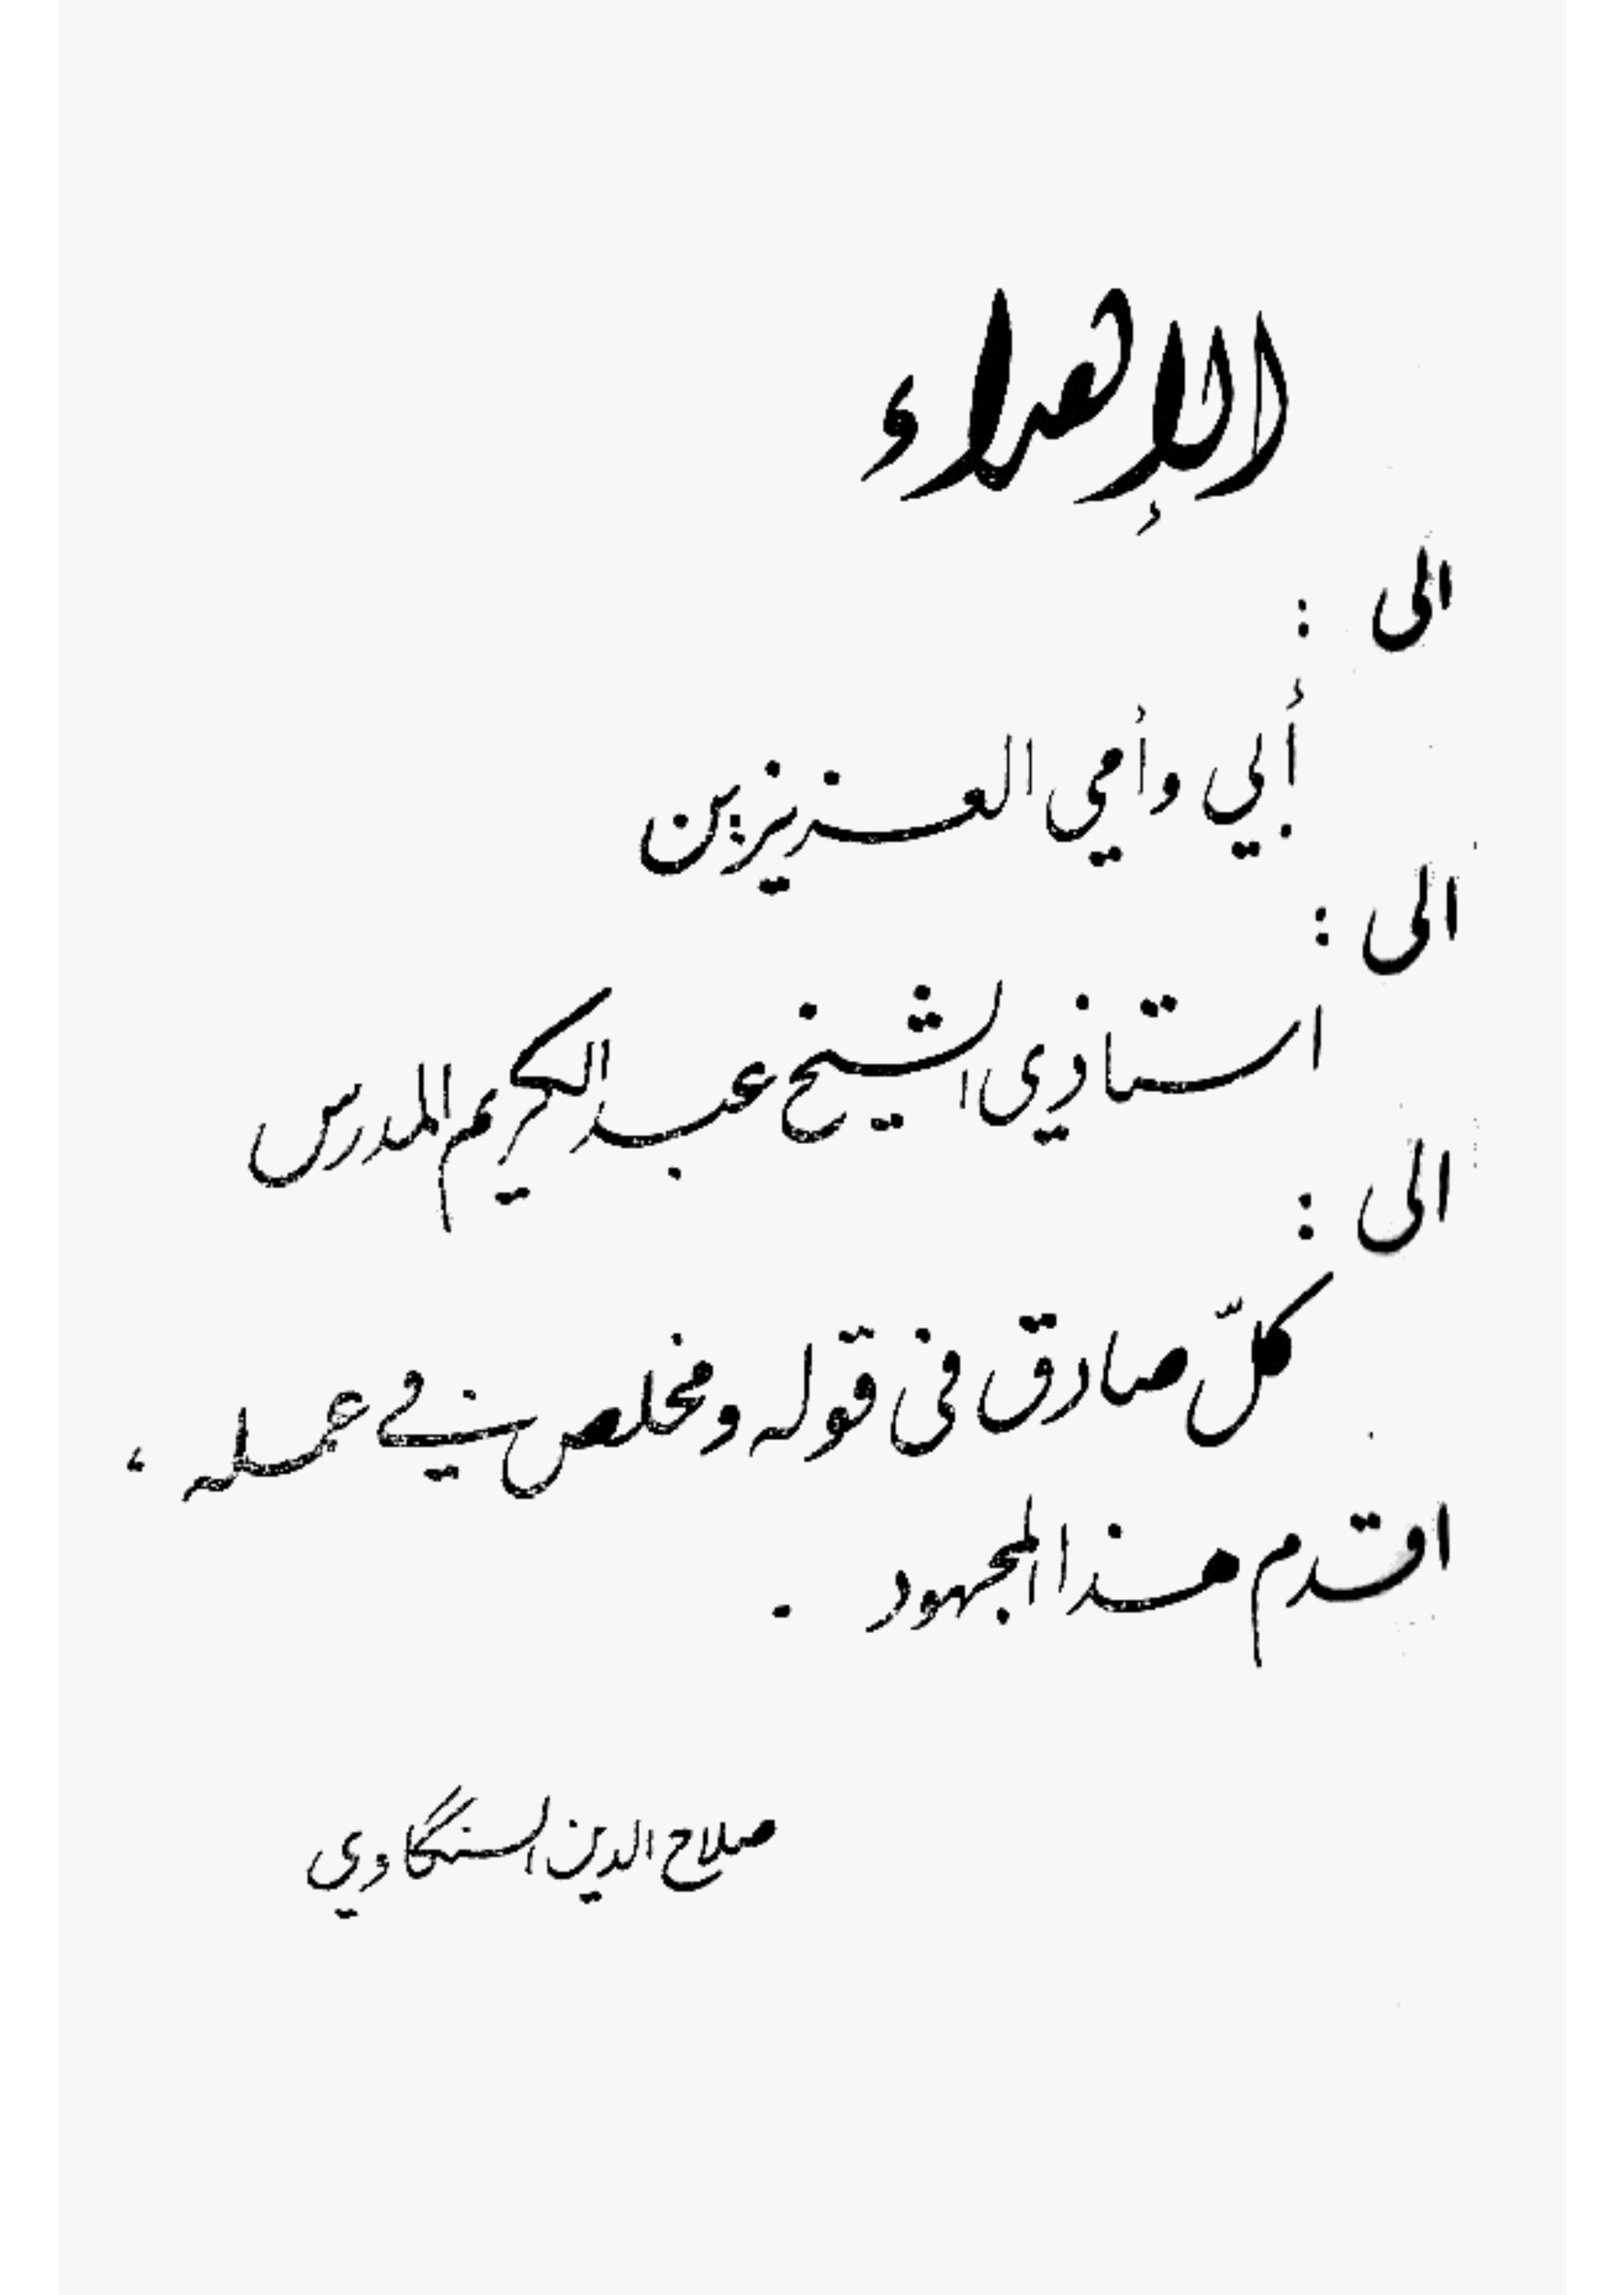 الإهداء
الى :
أبي وأمي العزيزين
الى :
استاذي الشيخ عبد الكريم المدرس
الى :
كلّ صادق في قوله ومخلص في عمله ،
اقدم هذا المجهود .
صلاح الدين السنگاوي